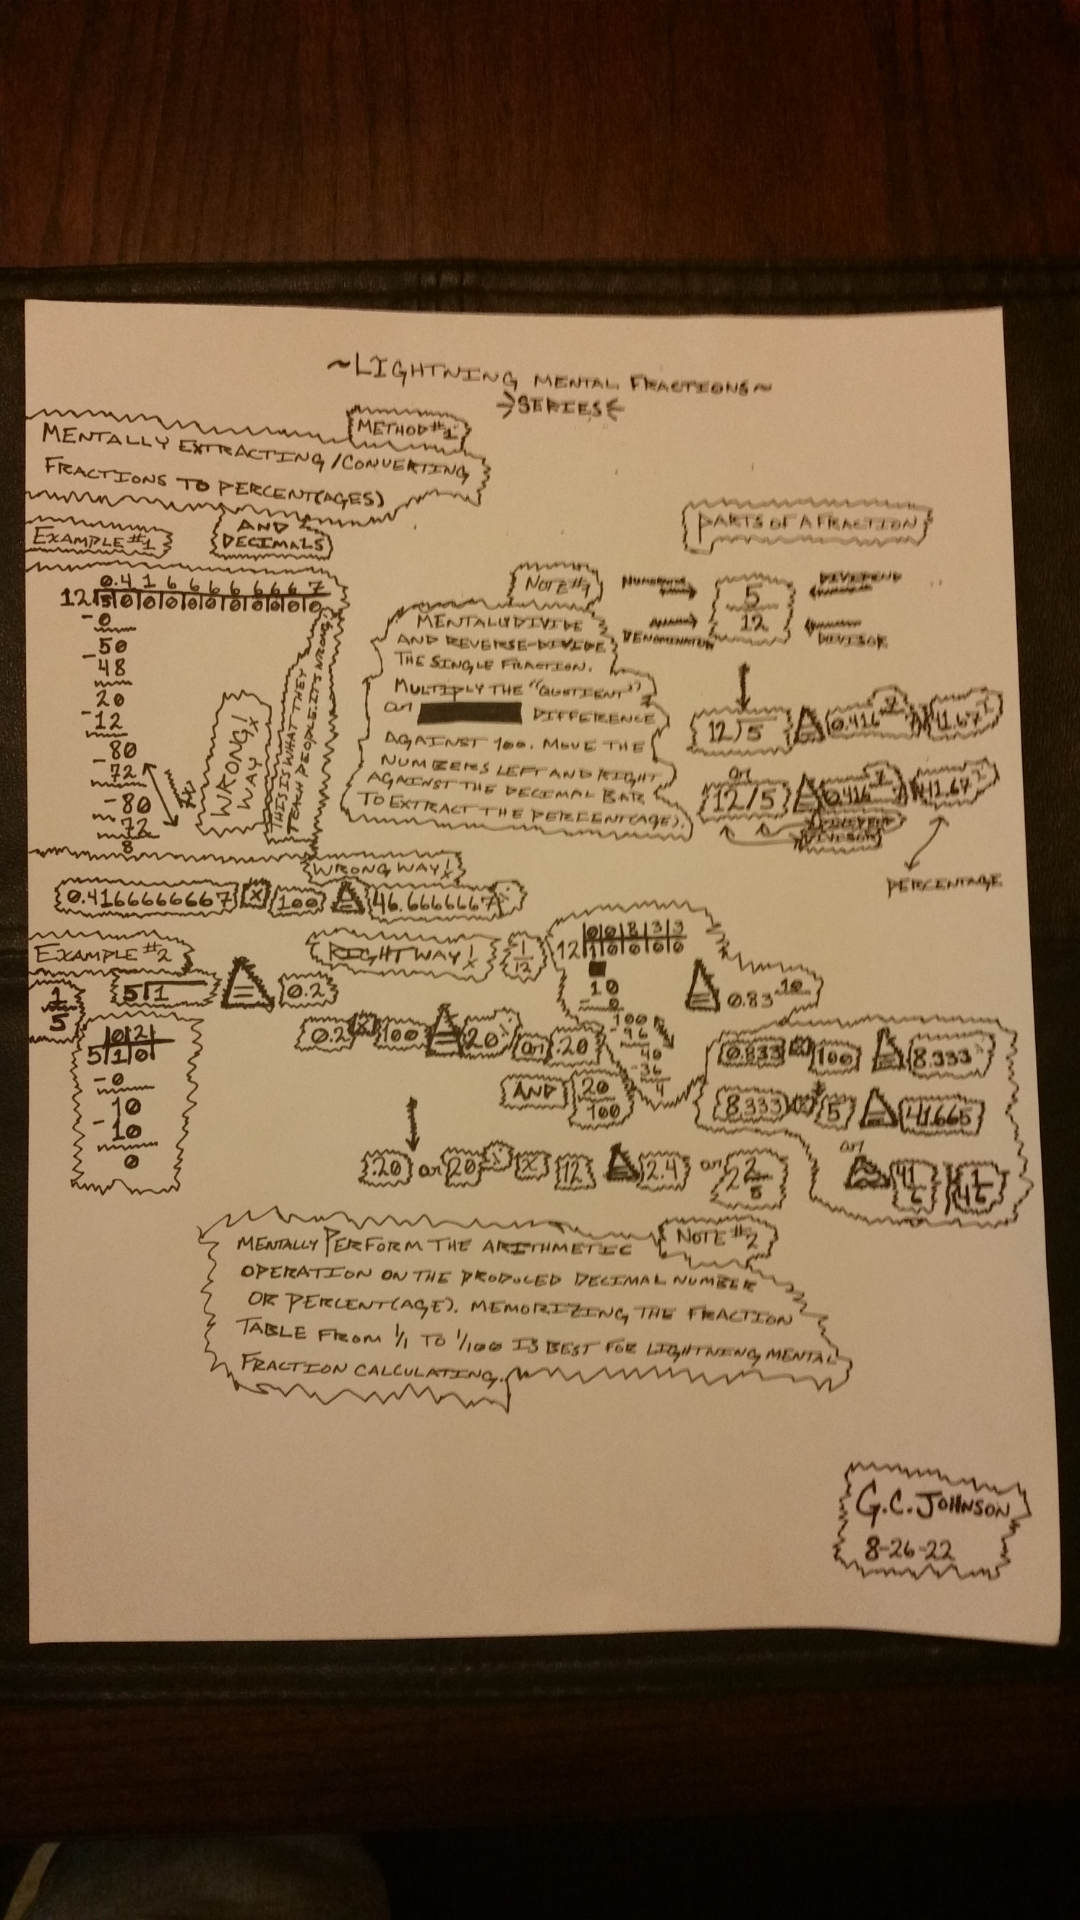 ~LIGHTNING MENTAL FRACTIONS~
SERIES
METHOD #1
MENTALLY EXTRACTING/CONVERTING
FRACTIONS TO PERCENT(AGES)
AND
DECIMALS
EXAMPLE #1
0.4 1 6 6 6 6 6 6 6 6 7
12 5 0 0 0 0 0 0 0 0 0 0
-0
50
-48
20
-12
-80
72
-80
-72
8
WRONG!
WAY
THIS IS WHAT THEY
TEACH PEOPLE. IT'S WRONG.
NOTE #1
MENTALLY DIVIDE
AND REVERSE-DIVIDE
THE SINGLE FRACTION.
MULTIPLY THE "QUOTIENT"
OR DIFFERENCE
AGAINST 100. MOVE THE
NUMBERS LEFT AND RIGHT
AGAINST THE DECIMAL BAR
TO EXTRACT THE PERCENT(AGE).
PARTS OF A FRACTION
5
12
DIVIDEND
DENOMINATOR
DIVISOR
12)5 = 0.416
41.67
OR
12/5 0.416
41.67
DIVISOR
PERCENTAGE
WRONG WAY!
0.41666666667 X 100 = 46.6666667
EXAMPLE #2
RIGHT WAY!
1
12
0 0 8 3 3
12 1 0 0 0 0
10
-0
100
-96
40
-36
4
= 0.83
1
5
5 1 = 0.2
0 2
5 1 0
-0
10
-10
0
0.2 X 100 = 20 OR .20
AND 20
100
0.833 X 100 = 8.333
8.333 X 5 = 41.665
OR
41
6
.20 OR 20 X 12 = 2.4 OR 2 2
5
NOTE #2
MENTALLY PERFORM THE ARITHMETIC
OPERATION ON THE PRODUCED DECIMAL NUMBER
OR PERCENT(AGE). MEMORIZING THE FRACTION
TABLE FROM 1/1 TO 1/100 IS BEST FOR LIGHTNING MENTAL
FRACTION CALCULATING.
G.C. JOHNSON
8-26-22